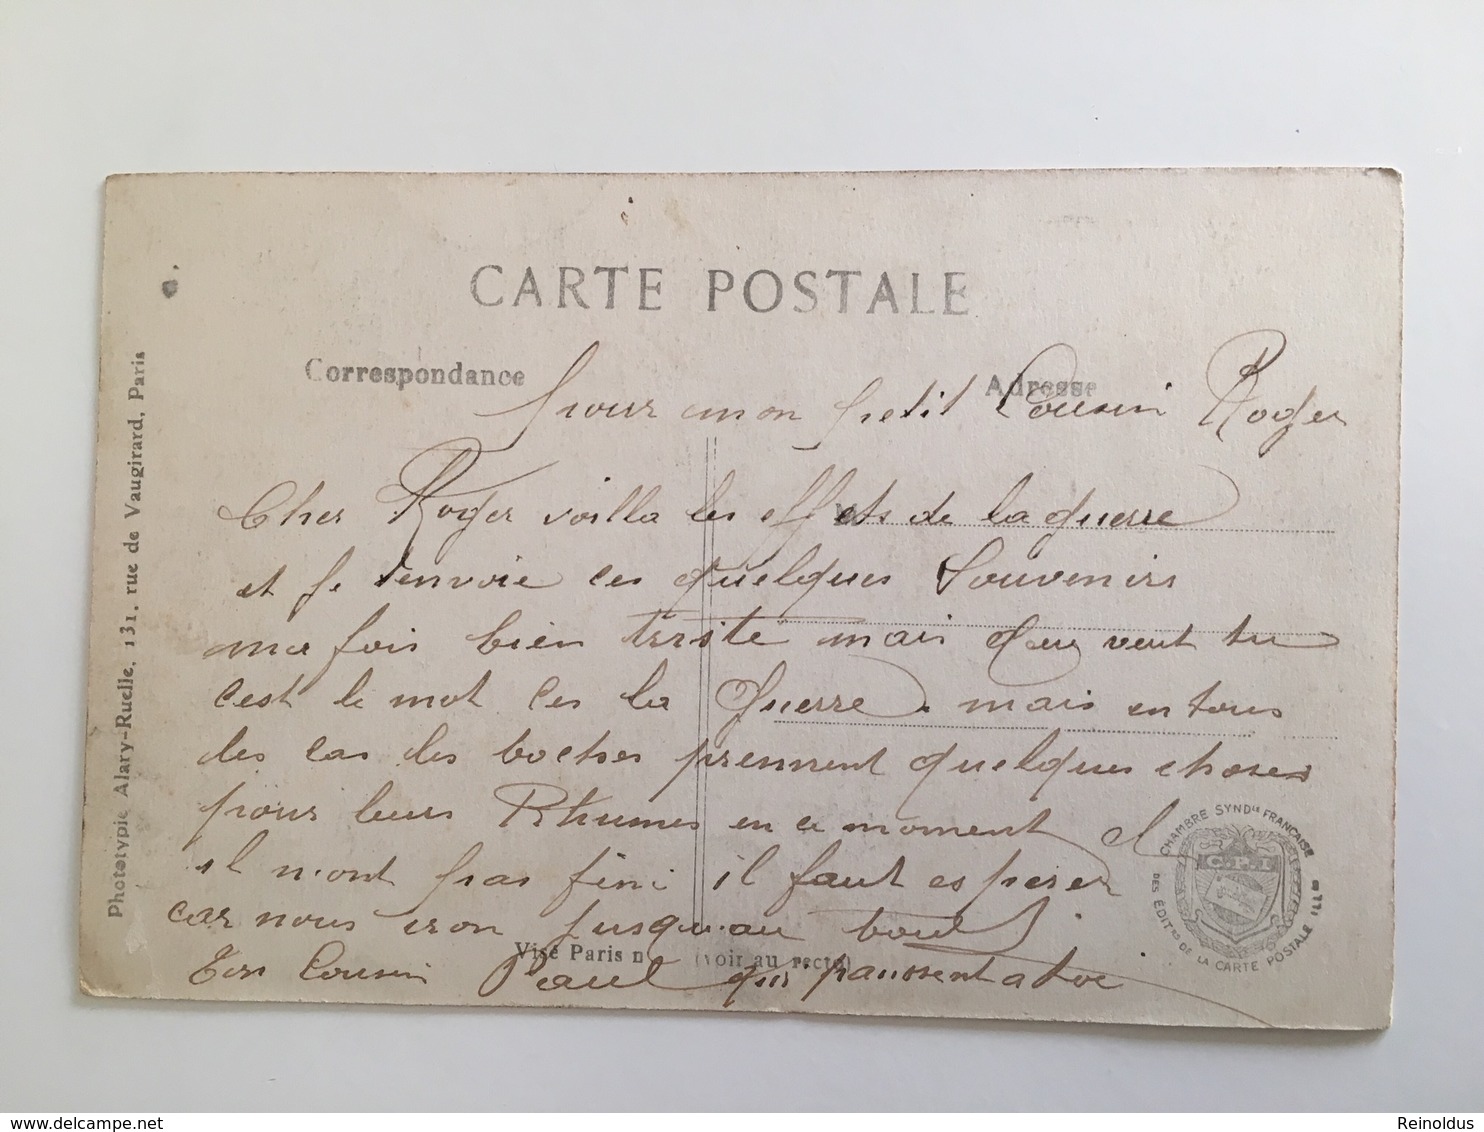 CARTE POSTALE
Correspondance
Adresse
pour mon petit Cousin Roger
Cher Roger voilla les effets de la guerre
et je t'envoie ces quelques Souvenirs
ma fois bien triste mais que veut tu
c'est le mot ces la Guerre. mais en tous
les cas les boches prennent quelques choses
pour leurs Rhumes en ce moment et
il n'ont pas fini il faut esperer
car nous iron jusqu'au bout
Ton Cousin Paul qui pensent a toi
Visé Paris n (voir au recto)
Phototypie Alary-Ruelle, 131, rue de Vaugirard, Paris
CHAMBRE SYND.LE FRANÇAISE
DES ÉDIT.RS DE LA CARTE POSTALE
C.P.I
Reinoldus